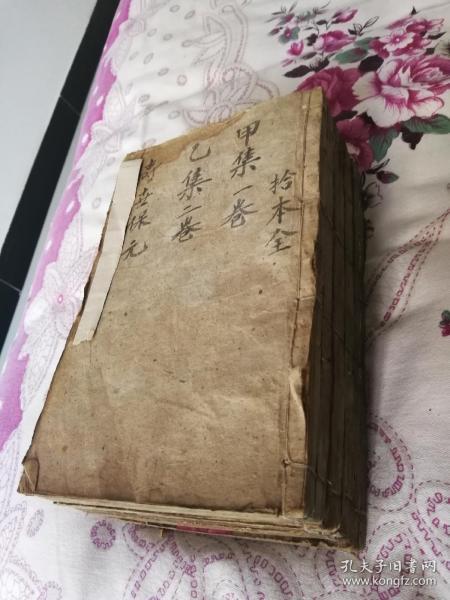 拾本全
甲集一卷
乙集二卷
壽世保元
孔夫子旧书网
www.kongfz.com